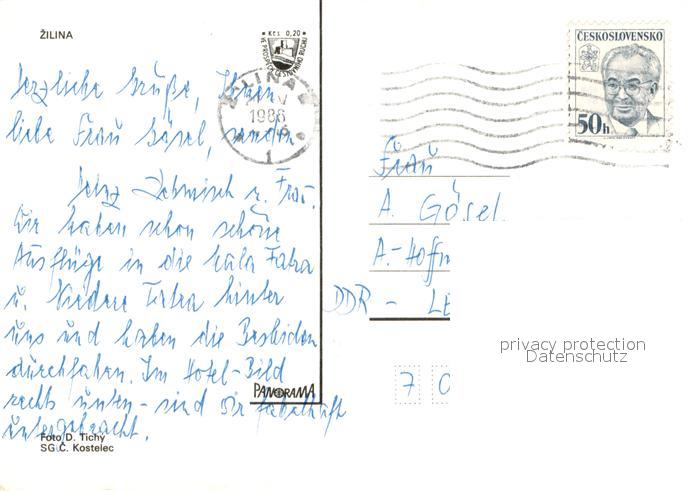 ŽILINA
Kčs 0,20
ČESKOSLOVENSKO
50h
ŽILINA
1986
1
Herzliche Grüße, Ihnen
liebe Frau Gösel, senden
Zehmisch u. Frau.
Wir haben schon schöne
Ausflüge in die Mala Fatra
u. Niedere Tatra hinter
uns und haben die Beskiden
durchfahren. Im Hotel-Bild
rechts unten - sind wir fabelhaft
untergebracht.
PANORAMA
Foto D. Tichý
SG Č. Kostelec
Frau
A. Gösel
A.-Hoffm
DDR - LE
7 0
privacy protection
Datenschutz